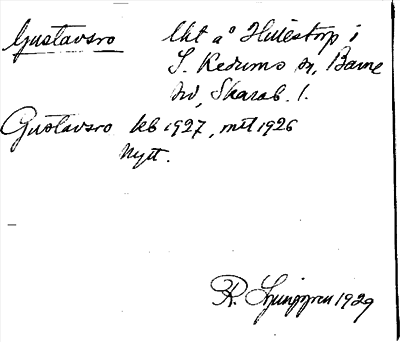 Gustavsro lht å Hulestorp i
S. Kedums sn, Barne
hd, Skarab. l.
Gustavsro lkb 1927, mtl 1926
Nytt.
R. Ljunggren 1929